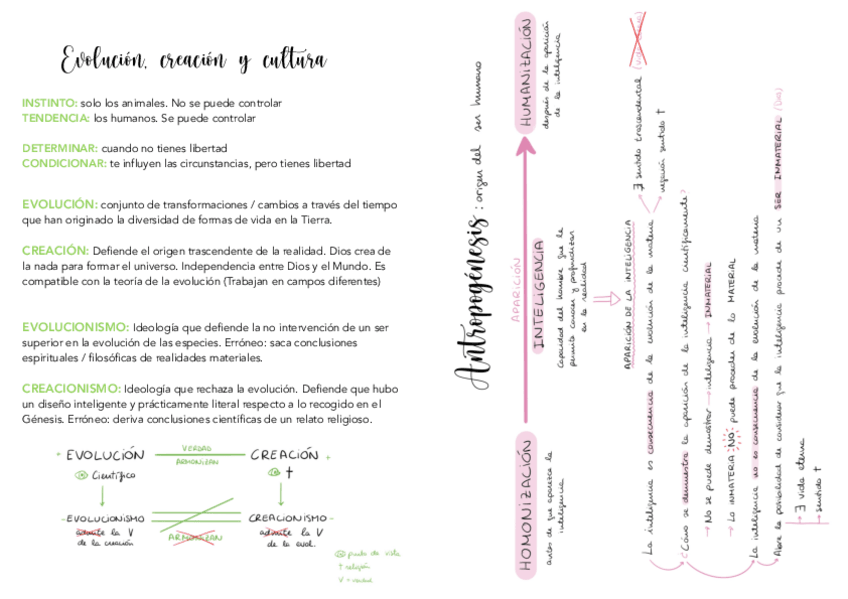 Evolución, creación y cultura
INSTINTO: solo los animales. No se puede controlar
TENDENCIA: los humanos. Se puede controlar
DETERMINAR: cuando no tienes libertad
CONDICIONAR: te influyen las circunstancias, pero tienes libertad
EVOLUCIÓN: conjunto de transformaciones / cambios a través del tiempo
que han originado la diversidad de formas de vida en la Tierra.
CREACIÓN: Defiende el origen trascendente de la realidad. Dios crea de
la nada para formar el universo. Independencia entre Dios y el Mundo. Es
compatible con la teoría de la evolución (Trabajan en campos diferentes)
EVOLUCIONISMO: Ideología que defiende la no intervención de un ser
superior en la evolución de las especies. Erróneo: saca conclusiones
espirituales / filosóficas de realidades materiales.
CREACIONISMO: Ideología que rechaza la evolución. Defiende que hubo
un diseño inteligente y prácticamente literal respecto a lo recogido en el
Génesis. Erróneo: deriva conclusiones científicas de un relato religioso.
+ EVOLUCIÓN VERDAD ARMONIZAN CREACIÓN +
Científico †
-EVOLUCIONISMO CREACIONISMO-
admite la V ARMONIZAN admite la V
de la creación de la evol.
punto de vista
† religión
V =
Antropogénesis: origen del ser humano
HOMONIZACIÓN
antes de que aparezca la
inteligencia
APARICIÓN
INTELIGENCIA
Capacidad del hombre que le
permite conocer y profundizar
en la realidad
HUMANIZACIÓN
después de la aparición
de la inteligencia
APARICIÓN DE LA INTELIGENCIA
La inteligencia es consecuencia de la evolución de la materia
∄ sentido trascendental
negación sentido †
¿Cómo se demuestra la aparición de la inteligencia científicamente?
→ No se puede demostrar → inteligencia → INMATERIAL
→ Lo INMATERIA NO puede proceder de lo MATERIAL
La inteligencia no es consecuencia de la evolución de la materia
Abre la posibilidad de considerar que la inteligencia procede de un SER INMATERIAL (Dios)
→ ∃ vida eterna
→ sentido †